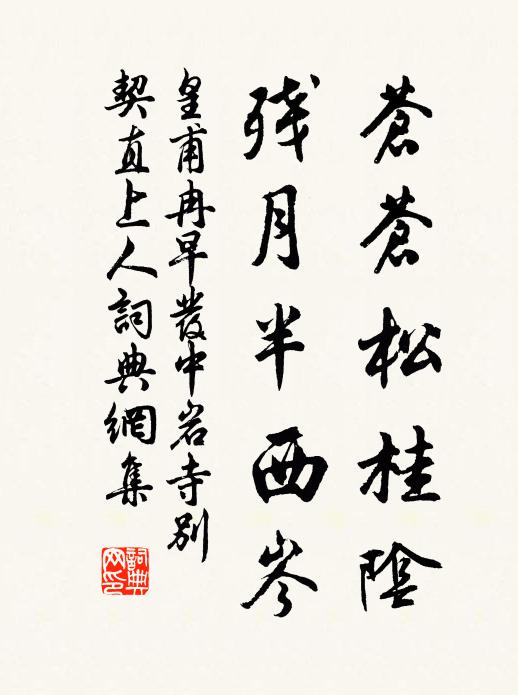 蒼蒼松桂陰
残月半西岑
皇甫冉早發中岩寺別
契直上人詞典網集
詞典网印